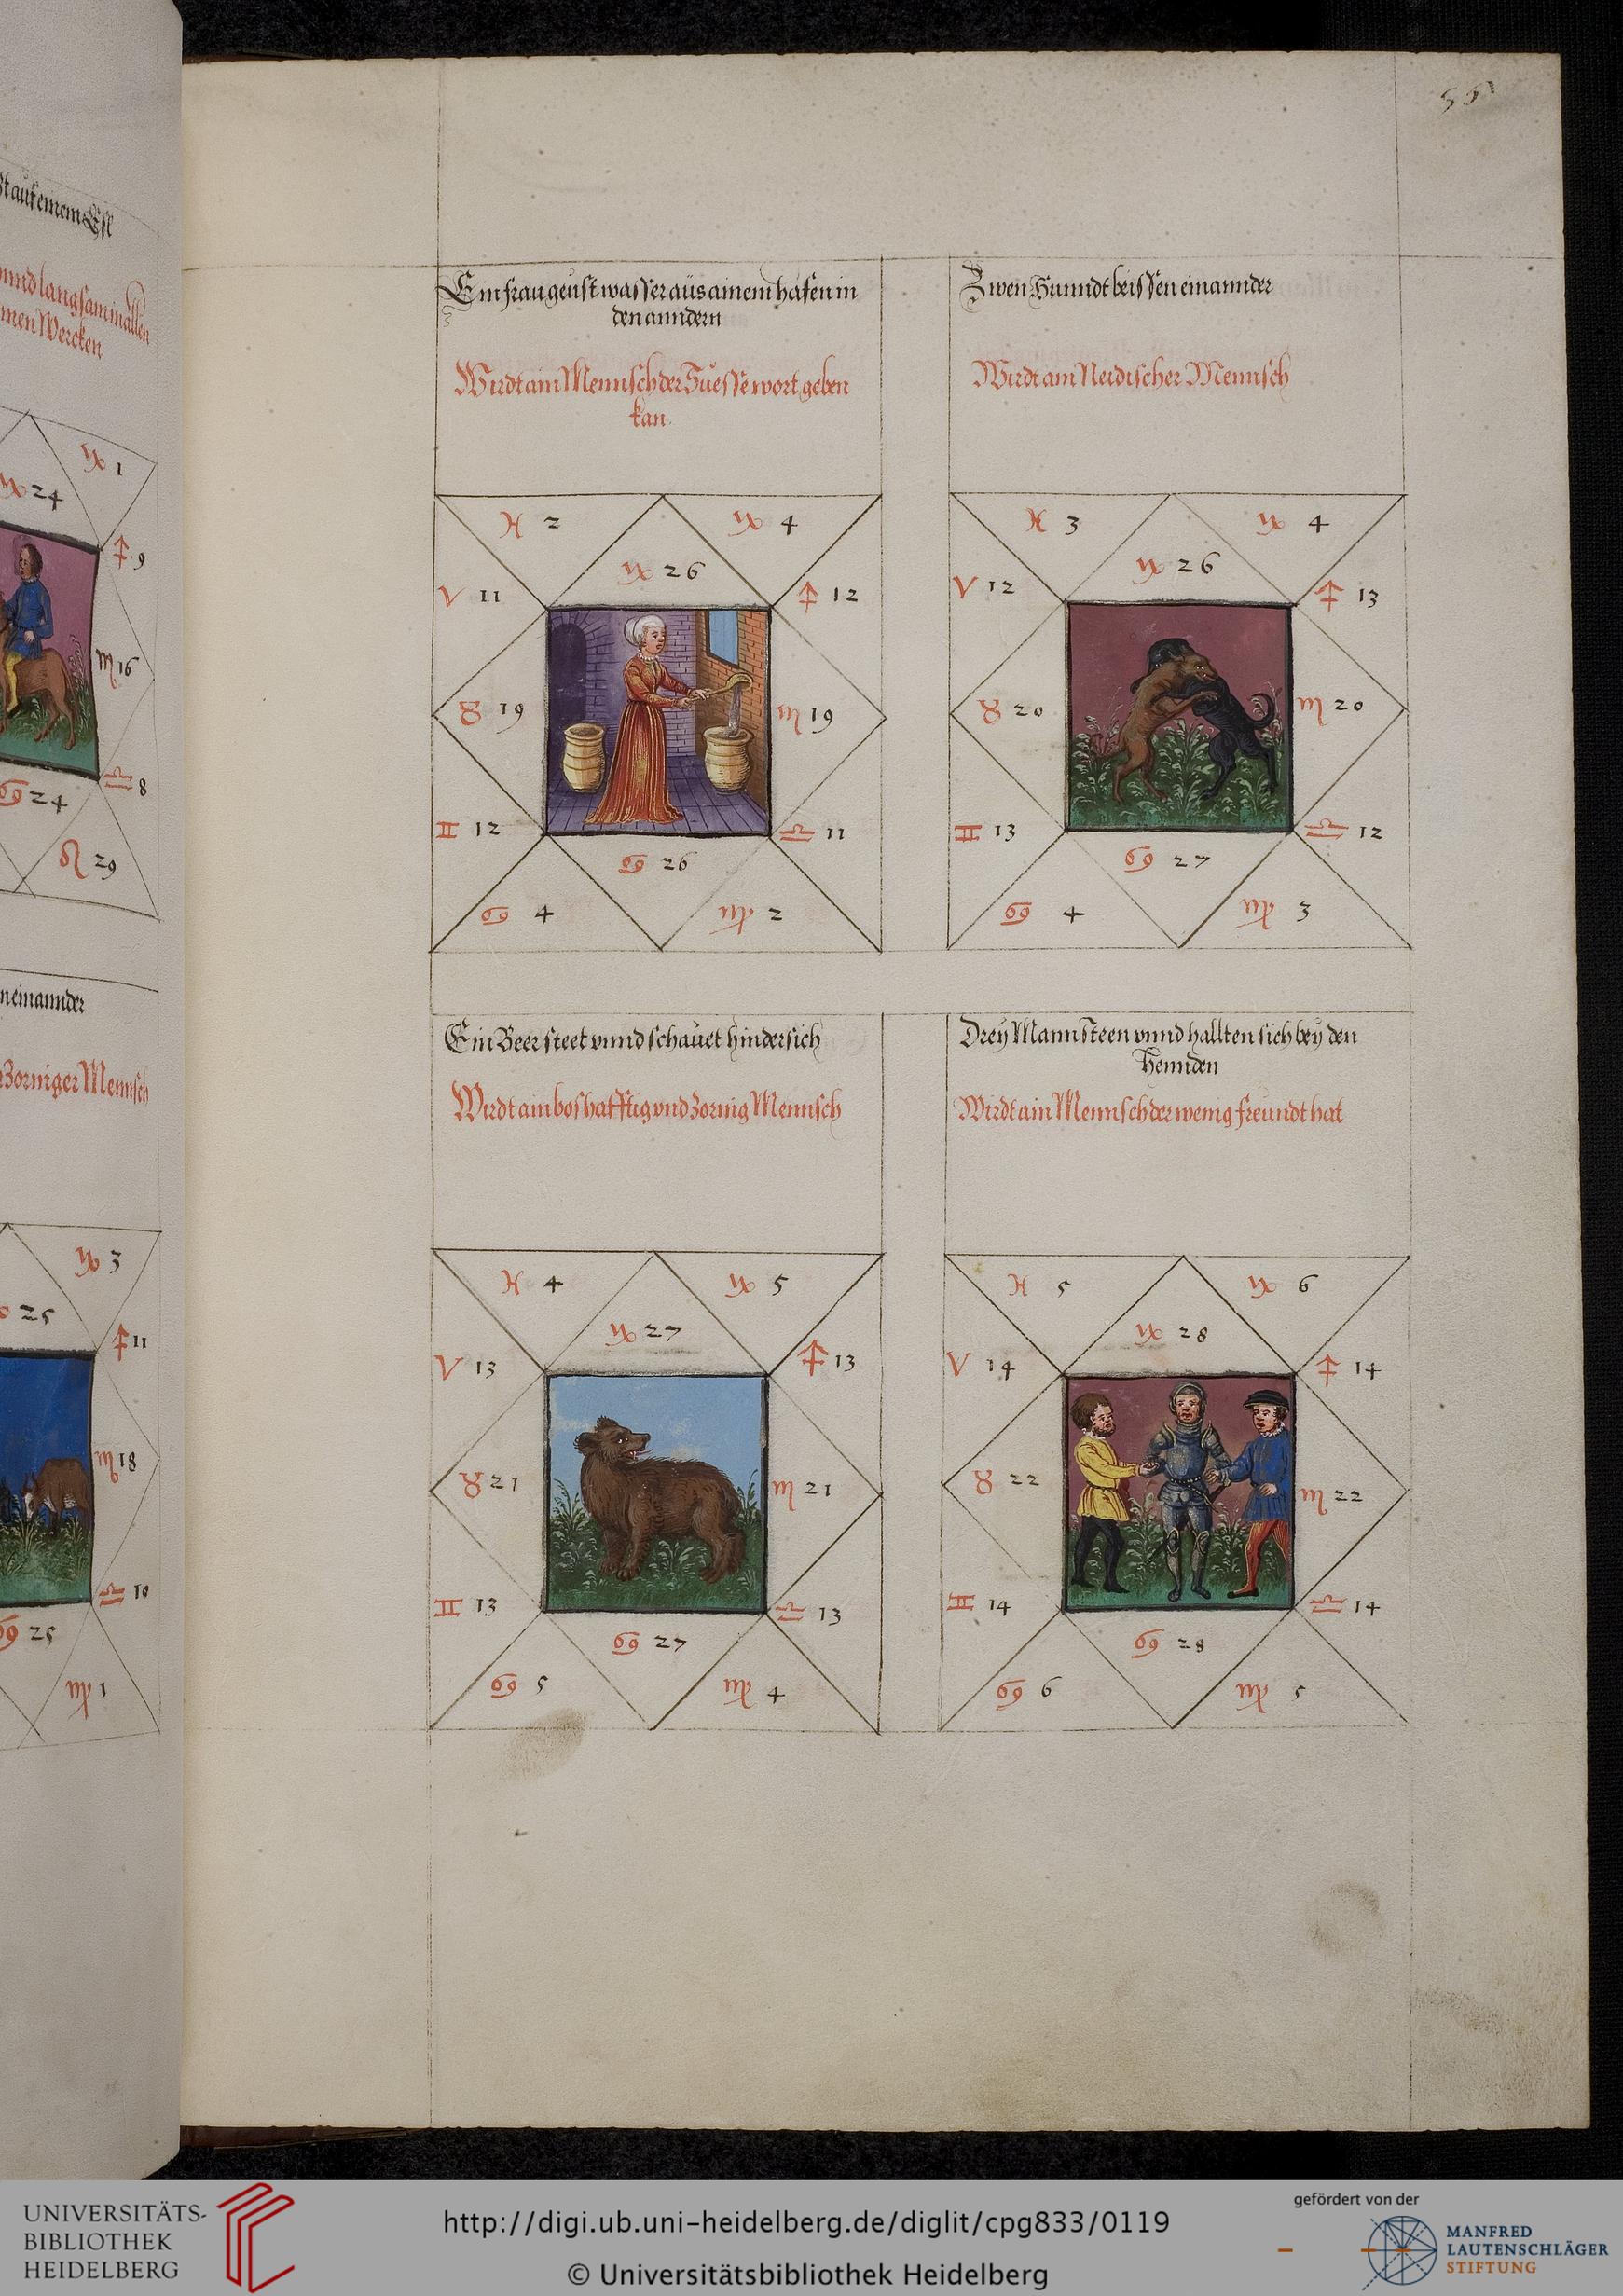 55
Ein frau geust wasser aus ainem hafen in
den anndern
Wirdt ain Mennsch der Suesse wort geben
kan.
♓ 2
♑ 4
♑ 26
♈ 11
♐ 12
♉ 19
♏ 19
♊ 12
♎ 11
♋ 26
♋ 4
♍ 2
Zwen Hunndt beissen einannder
Wirdt ain Neidischer Mennsch
♓ 3
♑ 4
♑ 26
♈ 12
♐ 13
♉ 20
♏ 20
♊ 13
♎ 12
♋ 27
♋ 4
♍ 3
Ein Beer steet vnnd schauet hindersich
Wirdt ain boshafftig vnd Zornig Mennsch
♓ 4
♑ 5
♑ 27
♈ 13
♐ 13
♉ 21
♏ 21
♊ 13
♎ 13
♋ 27
♋ 5
♍ 4
Drey Mann steen vnnd hallten sich bey den
Hennden
Wirdt ain Mennsch der wenig freundt hat
♓ 5
♑ 6
♑ 28
♈ 14
♐ 14
♉ 22
♏ 22
♊ 14
♎ 14
♋ 28
♋ 6
♍ 5
einannder
Zorniger Mennsch
♑ 1
♑ 24
♐ 9
♏ 16
♎ 8
♋ 24
♌ 29
♑ 3
25
♐ 11
♏ 18
♎ 10
♋ 25
♍ 1
UNIVERSITÄTS-
BIBLIOTHEK
HEIDELBERG
http://digi.ub.uni-heidelberg.de/diglit/cpg833/0119
© Universitätsbibliothek Heidelberg
gefördert von der
MANFRED
LAUTENSCHLÄGER
STIFTUNG